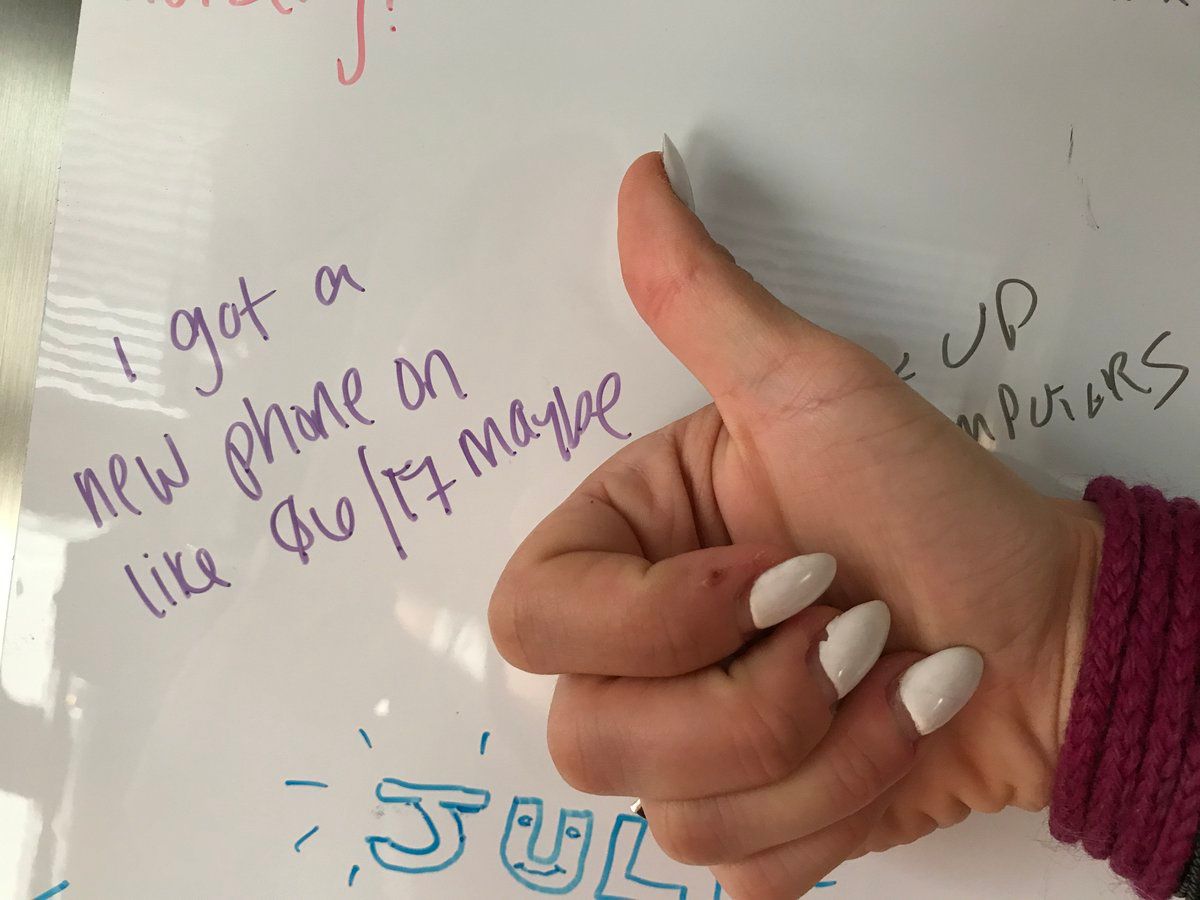 i got a
new phone on
like 06/17 maybe
UP
JUL